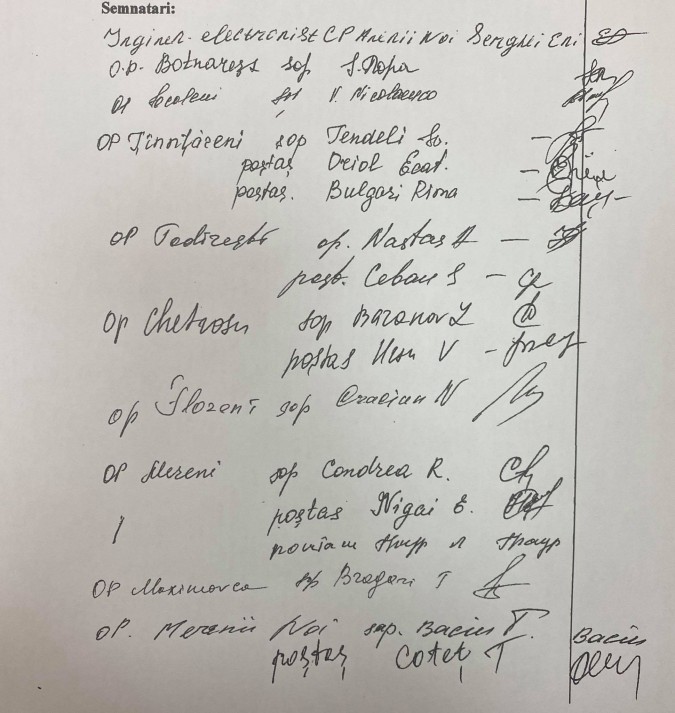 Semnatari:
Inginer-electronist CP Anenii Noi Serghei Eni
O.P. Botnarești sop S. Popa
OP Socoleni V. Nicolaesco
OP Țînțăreni sop Tendeli Sv.
poștaș Oriol Ecat.
poștaș. Bulgari Rima
OP Todirești op. Nastas A
poșt. Ceban S
OP Chetrosu sop Baranov L
poștaș Ursu V
OP Floreni sop Craciun N
OP Mereni sop Condrea R.
poștaș Nigai E.
OP Maximovca sop Bragari T
OP. Merenii Noi sop. Baciu T. Baciu
poștaș Coteț T